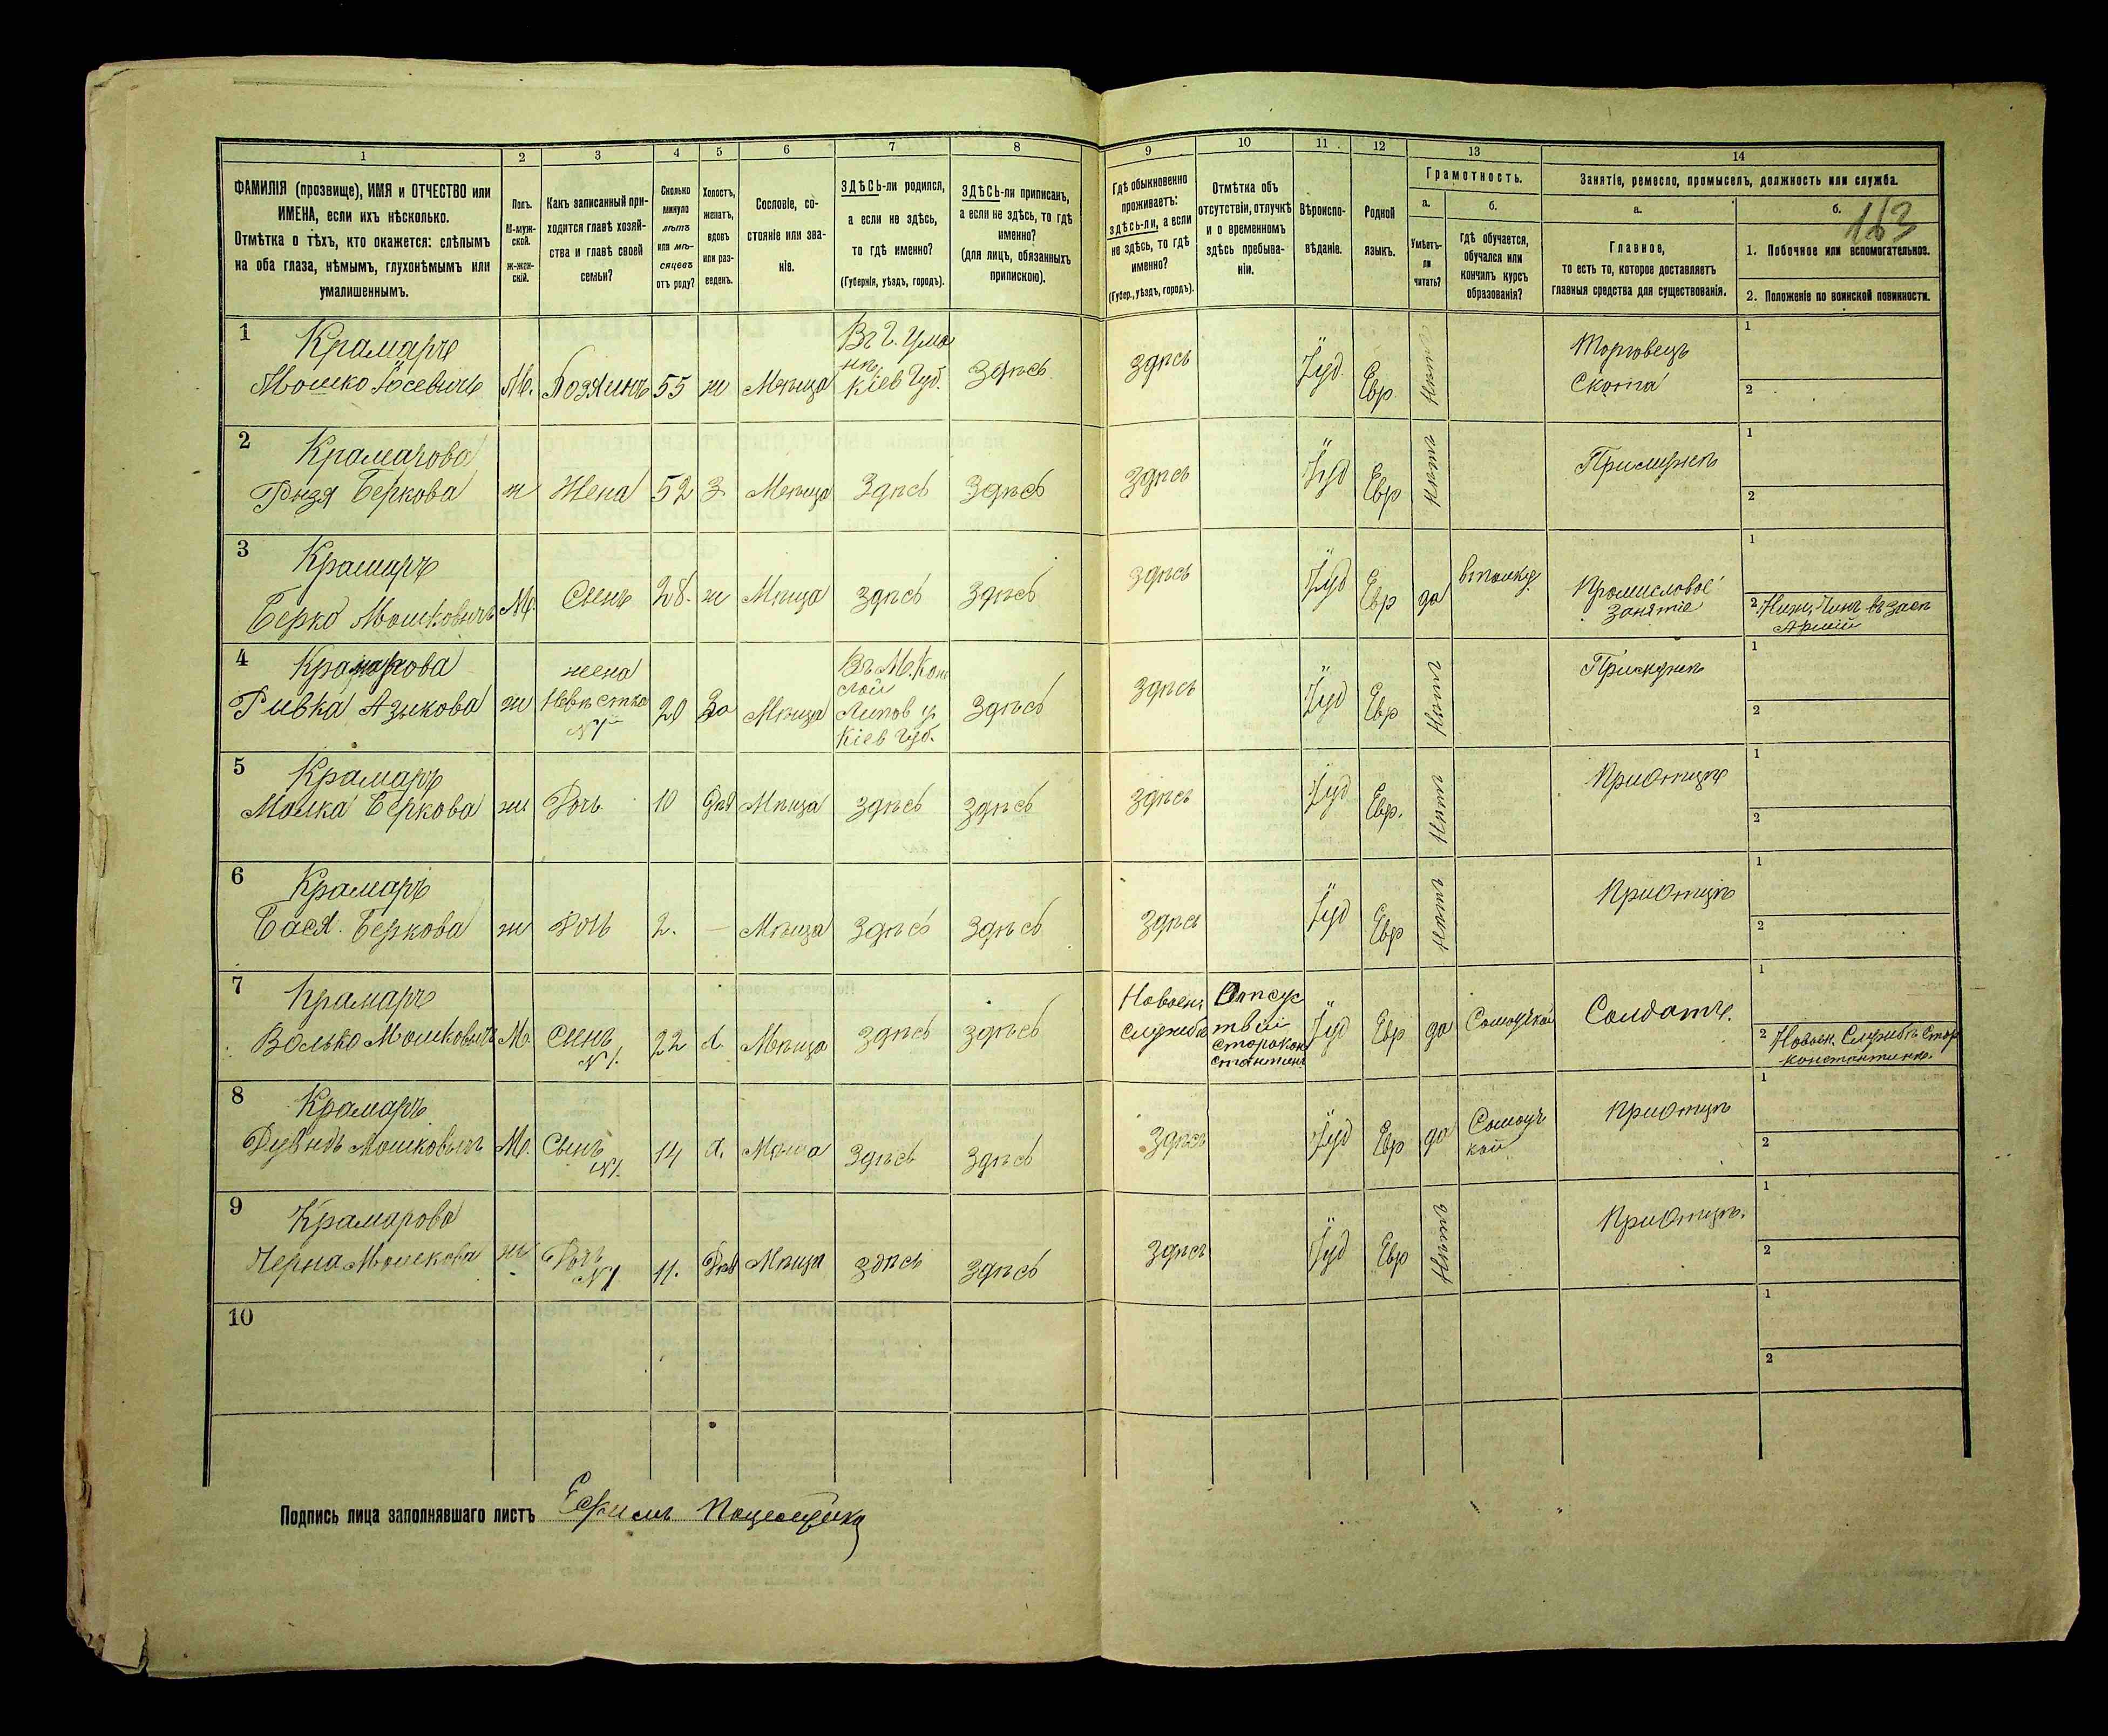 1 2 3 4 5 6 7 8 9 10 11 12 13 14
ФАМИЛІЯ (прозвище), ИМЯ и ОТЧЕСТВО или
ИМЕНА, если ихъ нѣсколько.
Отмѣтка о тѣхъ, кто окажется: слѣпымъ
на оба глаза, нѣмымъ, глухонѣмымъ или
умалишеннымъ.
Полъ.
М-муж-
ской.
ж-жен-
скій.
Какъ записанный при-
ходится главѣ хозяй-
ства и главѣ своей
семьи?
Сколько
минуло
лѣтъ
или мѣ-
сяцевъ
отъ роду?
Холостъ,
женатъ,
вдовъ
или раз-
веденъ.
Сословіе, со-
стояніе или зва-
ніе.
ЗДѢСЬ-ли родился,
а если не здѣсь,
то гдѣ именно?
(Губернія, уѣздъ, городъ).
ЗДѢСЬ-ли приписанъ,
а если не здѣсь, то гдѣ
именно?
(для лицъ, обязанныхъ
припискою).
Гдѣ обыкновенно
проживаетъ:
здѣсь-ли, а если
не здѣсь, то гдѣ
именно?
(Губер., уѣздъ, городъ).
Отмѣтка объ
отсутствіи, отлучкѣ
и о временномъ
здѣсь пребыва-
ніи.
Вѣроиспо-
вѣданіе.
Родной
языкъ.
Грамотность.
а.
Умѣетъ-
ли
читать?
б.
гдѣ обучается,
обучался или
кончилъ курсъ
образованія?
Занятіе, ремесло, промыселъ, должность или служба.
а.
Главное,
то есть то, которое доставляетъ
главныя средства для существованія.
б.
163
1. Побочное или вспомогательное.
2. Положеніе по воинской повинности.
1
Крамаръ
Мошко Іосевичъ
М.
Хозяинъ
55
ж
Мѣща
Въ г. Ума
нѣ
Кіев Губ.
Здѣсь
здѣсь
Іуд
Евр
Нѣтъ
Торговецъ
Скота
1
2
2
Крамарова
Рызя Беркова
ж
Жена
52
З.
Мѣща
Здѣсь
Здѣсь
Здѣсь
Іуд
Евр
Нѣтъ
Примужѣ
1
2
3
Крамаръ
Берко Мошковичъ
М.
Сынъ
28.
ж
Мѣща
здѣсь
здѣсь
здѣсь
Іуд
Евр
да
Промисловое
занятіе
1
2 Нижн. Чинъ въ запѣ
Арміи
4
Крамарова
Ривка Азыкова
ж
жена
Невѣстка
№1
20
За
Мѣща
Въ М.
Липов у.
Кіев Губ.
Здѣсь
Здѣсь
Іуд
Евр
Нѣтъ
Примужѣ
1
2
5
Крамаръ
Малка Беркова
ж
Дочь
10
Дѣв
Мѣща
здѣсь
здѣсь
здѣсь
Іуд
Евр.
Нѣтъ
Приотцѣ
1
2
6
Крамаръ
Бася. Беркова
ж
Дочь
2.
—
Мѣща
Здѣсь
здѣсь
здѣсь
Іуд
Евр
Нѣтъ
Приотцѣ
1
2
7
Крамаръ
Волько Мошковичъ
М.
Сынъ
№1.
22
х.
Мѣща
здѣсь
здѣсь
Новоен.
службѣ
Отсус
твіи
Старокон
стантин
Іуд
Евр
да
Самоучкой
Солдатъ.
1
2 Новоен. Службѣ Стар
константинѣ.
8
Крамаръ
Дувидъ Мошковичъ
М.
Сынъ
№1.
14
х.
Мѣща
Здѣсь
здѣсь
Здѣсь
Іуд
Евр
да
Самоуч
кой
Приотцѣ
1
2
9
Крамарова
Черна Мошкова
ж
Дочь
№1
11.
Дѣв
Мѣща
здѣсь
здѣсь
Здѣсь
Іуд
Евр
Нѣтъ
Приотцѣ.
1
2
10
1
2
Подпись лица заполнявшаго листъ Ефимъ